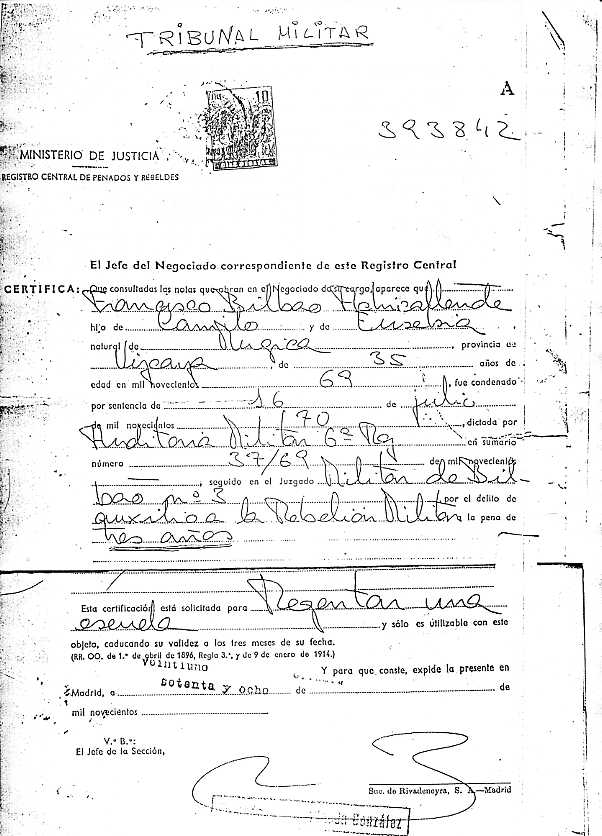 TRIBUNAL MILITAR
10
A
393842
MINISTERIO DE JUSTICIA
REGISTRO CENTRAL DE PENADOS Y REBELDES
El Jefe del Negociado correspondiente de este Registro Central
CERTIFICA: Que consultadas las notas que obran en el Negociado de su cargo, aparece que
Francisco Bilbao
hijo de Camilo y de Eusebia
natural de Mugica, provincia de
Vizcaya, de 35 años de
edad en mil novecientos 69, fue condenado
por sentencia de 16 de julio
de mil novecientos 70, dictada por
Auditoria Militar 6ª Rg en sumario
número 37/69 de mil novecientos
seguido en el Juzgado Militar de Bil-
bao nº 3 por el delito de
auxilio a la Rebelión Militar a la pena de
tres años
Esta certificación está solicitada para Regentar una
escuela y sólo es utilizable con este
objeto, caducando su validez a los tres meses de su fecha.
(RR. OO. de 1.º de abril de 1896, Regla 3.ª, y de 9 de enero de 1914.)
Veintiuno Y para que conste, expide la presente en
Madrid, a setenta y ocho de de
mil novecientos
V.º B.º:
El Jefe de la Sección,
Suc. de Rivadeneyra, S. A.—Madrid
González